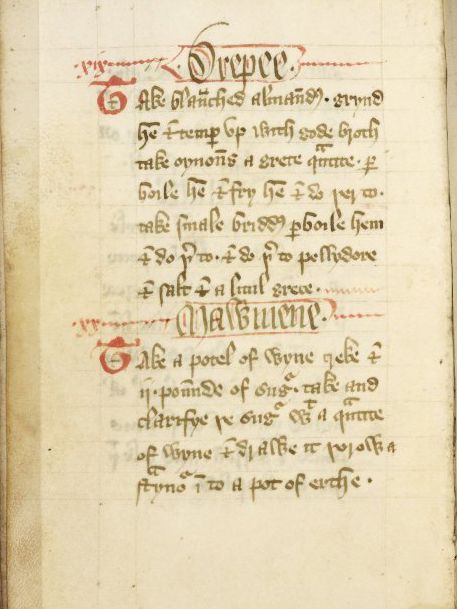 .xix. Drepee.
Take blaūched almand̄. grynd
hē ⁊ temꝑ vp with gode broth
take oynon̄s a grete qᵃntite. ꝑ
boile hē ⁊ fry hē ⁊ do þer to.
take smale bridd̄ ꝑboile hem
⁊ do þʳ to. ⁊ do þʳ to pellydore
⁊ salt ⁊ a litul grece.
.xx. Mawmene.
Take a potel of wyne greke ⁊
ii. poūnde of sugʳ. take and
clarifye þe sugʳ wᵗ a qᵃntite
of wyne ⁊ drawe it þorow a
stᵃynoʳ ī to a pot of erthe.